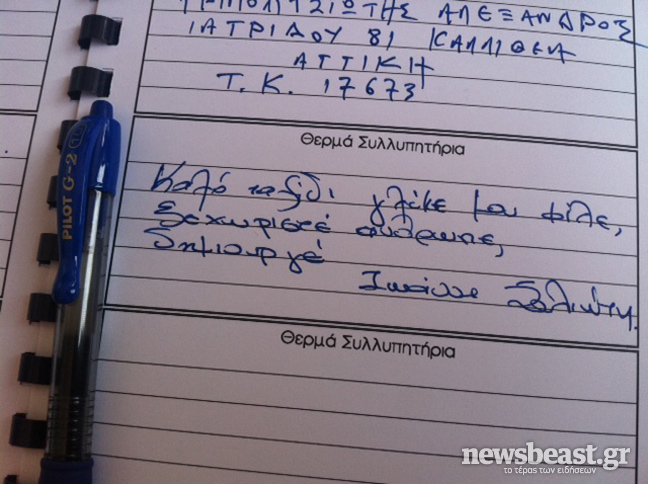 ΤΡΙΠΟΛΙΤΣΙΩΤΗΣ ΑΛΕΞΑΝΔΡΟΣ
ΙΑΤΡΙΔΟΥ 81 ΚΑΛΛΙΘΕΑ
ΑΤΤΙΚΗ
Τ.Κ. 17673
Θερμά Συλλυπητήρια
Καλό ταξίδι γλυκέ μου φίλε,
ξεχωριστέ άνθρωπε,
δημιουργέ
Θερμά Συλλυπητήρια
PILOT G-2
newsbeast.gr
το τέρας των ειδήσεων